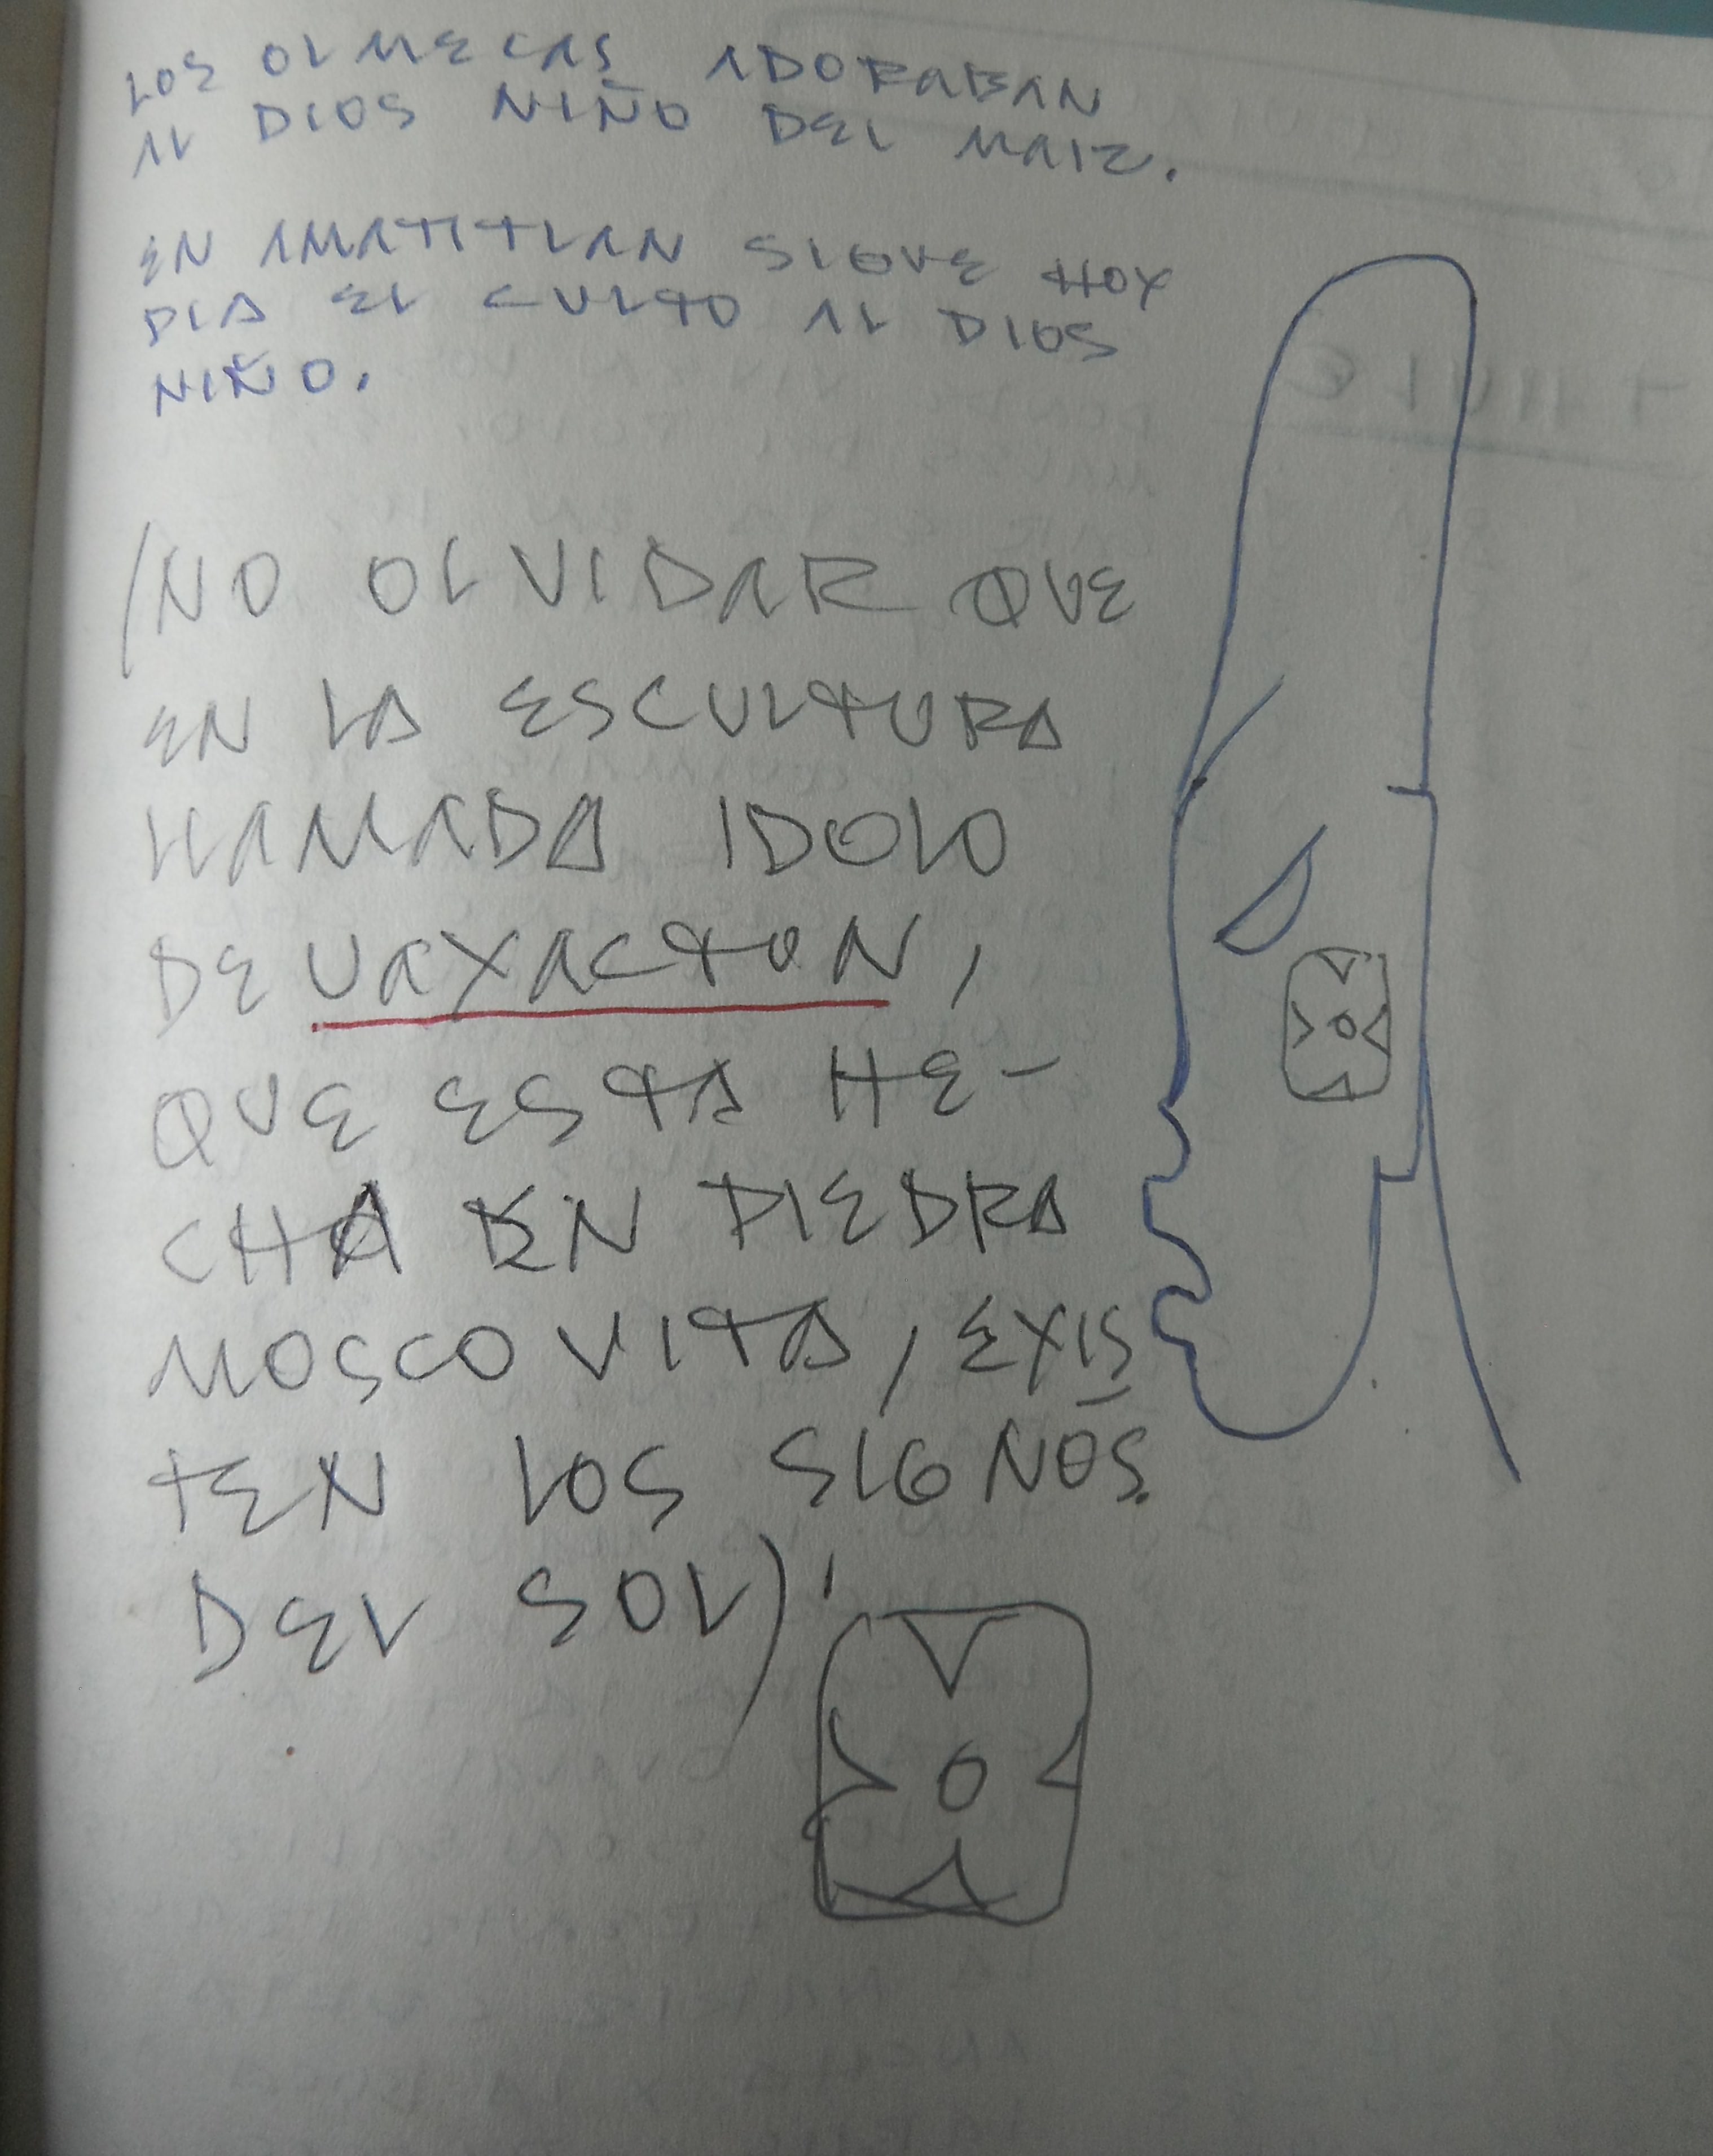 LOS OLMECAS ADORABAN
AL DIOS NIÑO DEL MAIZ.
EN AMATITLAN SIGUE HOY
DIA EL CULTO AL DIOS
NIÑO.
(NO OLVIDAR QUE
EN LA ESCULTURA
LLAMADA IDOLO
DE UAXACTUN,
QUE ESTA HE-
CHA EN PIEDRA
MOSCOVITA, EXIS
TEN LOS SIGNOS
DEL SOL).